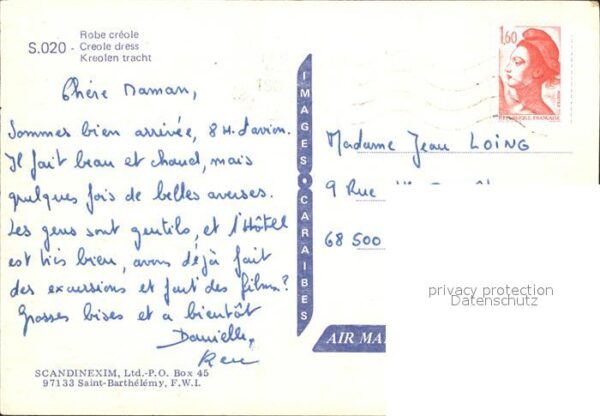 Robe créole
S.020 - Creole dress
Kreolen tracht
Chère Maman,
Sommes bien arrivée, 8 H. d'avion.
Il fait beau et chaud, mais
quelques fois de belles averses.
Les gens sont gentils, et l'Hôtel
est très bien, avons déjà fait
des excursions et fait des films.
Grosses bises et a bientôt
Danielle,
IMAGES CARAIBES
AIR MA
1,60
REPUBLIQUE FRANÇAISE
Madame Jean LOING
9 Rue
68 500
privacy protection
Datenschutz
SCANDINEXIM, Ltd.-P.O. Box 45
97133 Saint-Barthélémy, F.W.I.